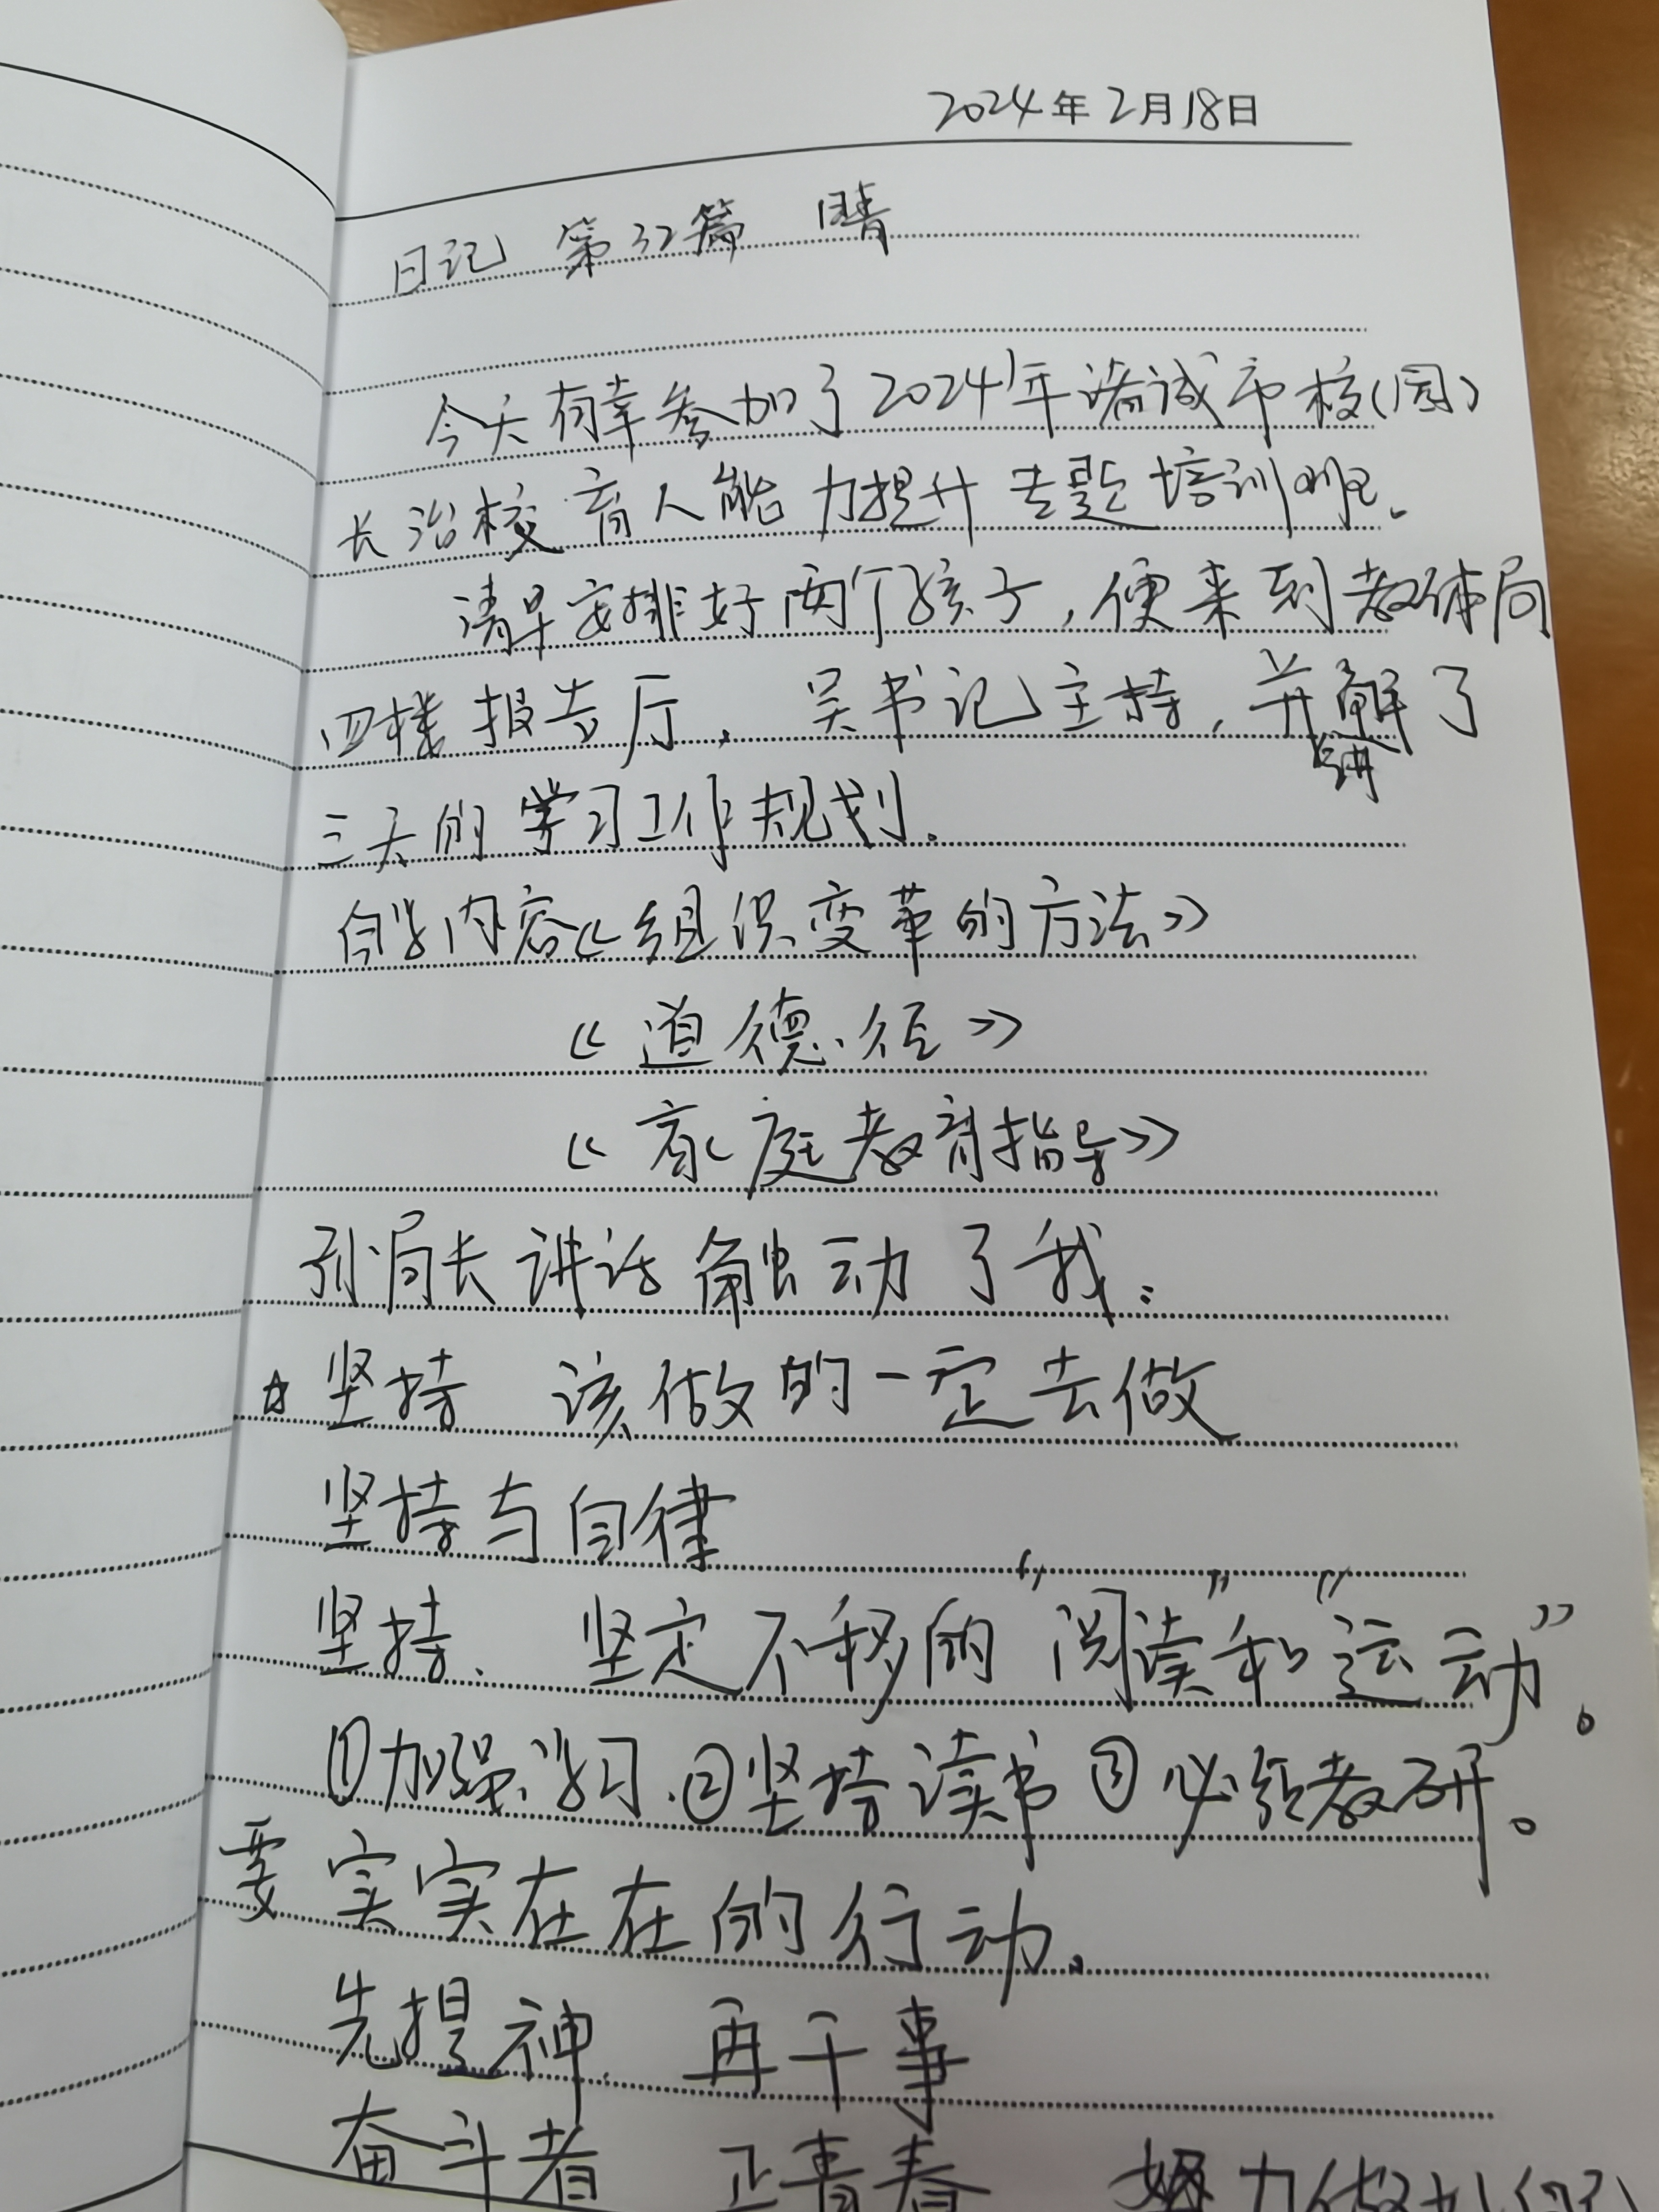 2024年2月18日
日记 第32篇 晴
今天有幸参加了2024年诸诚市校(园)
长治校育人能力提升专题培训班.
清早安排好两个孩子,便来到教体局
四楼报告厅,吴书记主持,并讲解了
三天的学习工作规划.
自学内容《组织变革的方法》
《道德经》
《家庭教育指导》
孙局长讲话触动了我:
☆坚持 该做的一定去做
坚持与自律
坚持、坚定不移的“阅读”和“运动”。
①加强学习.②坚持读书③必须教研。
要实实在在的行动.
先提神 再干事
奋斗者 正青春 努力做